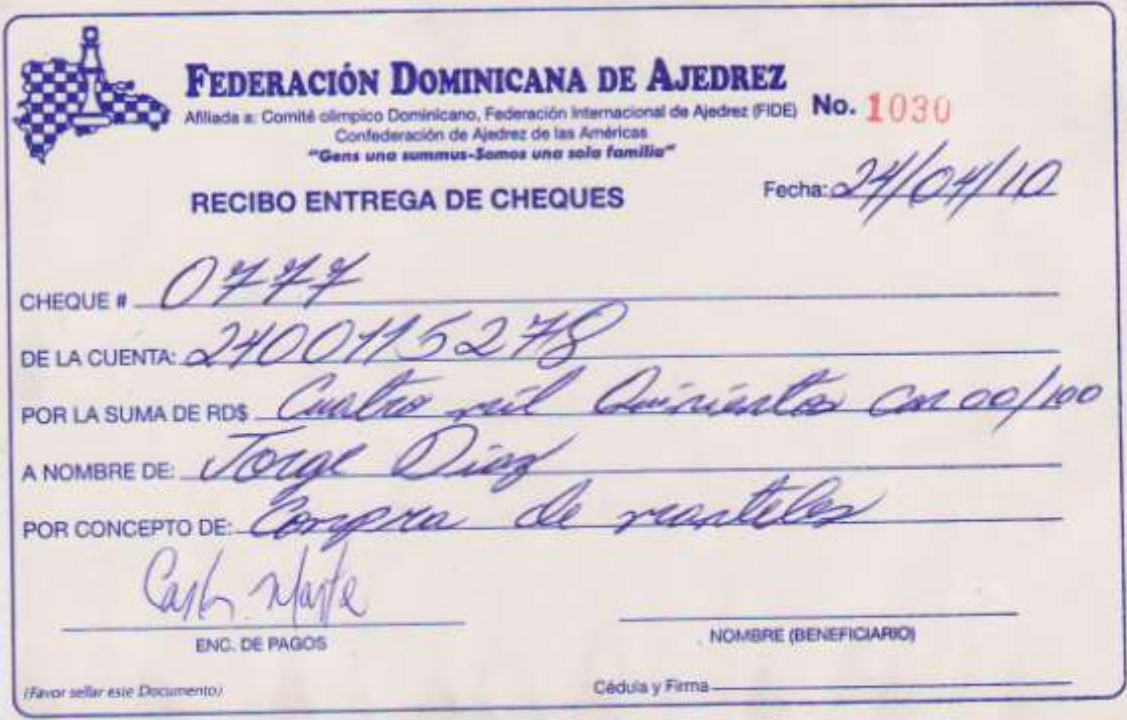 FEDERACIÓN DOMINICANA DE AJEDREZ
Afiliada a: Comité olimpico Dominicano, Federación Internacional de Ajedrez (FIDE) No. 1030
Confederación de Ajedrez de las Américas
"Gens una summus-Somos una sola familia"
RECIBO ENTREGA DE CHEQUES
Fecha: 24/04/10
CHEQUE # 0777
DE LA CUENTA: 2400115278
POR LA SUMA DE RD$ Cuatro mil Quinientos con 00/100
A NOMBRE DE: Jorge Diaz
POR CONCEPTO DE: Compra de manteles
ENC. DE PAGOS
NOMBRE (BENEFICIARIO)
(Favor sellar este Documento)
Cédula y Firma